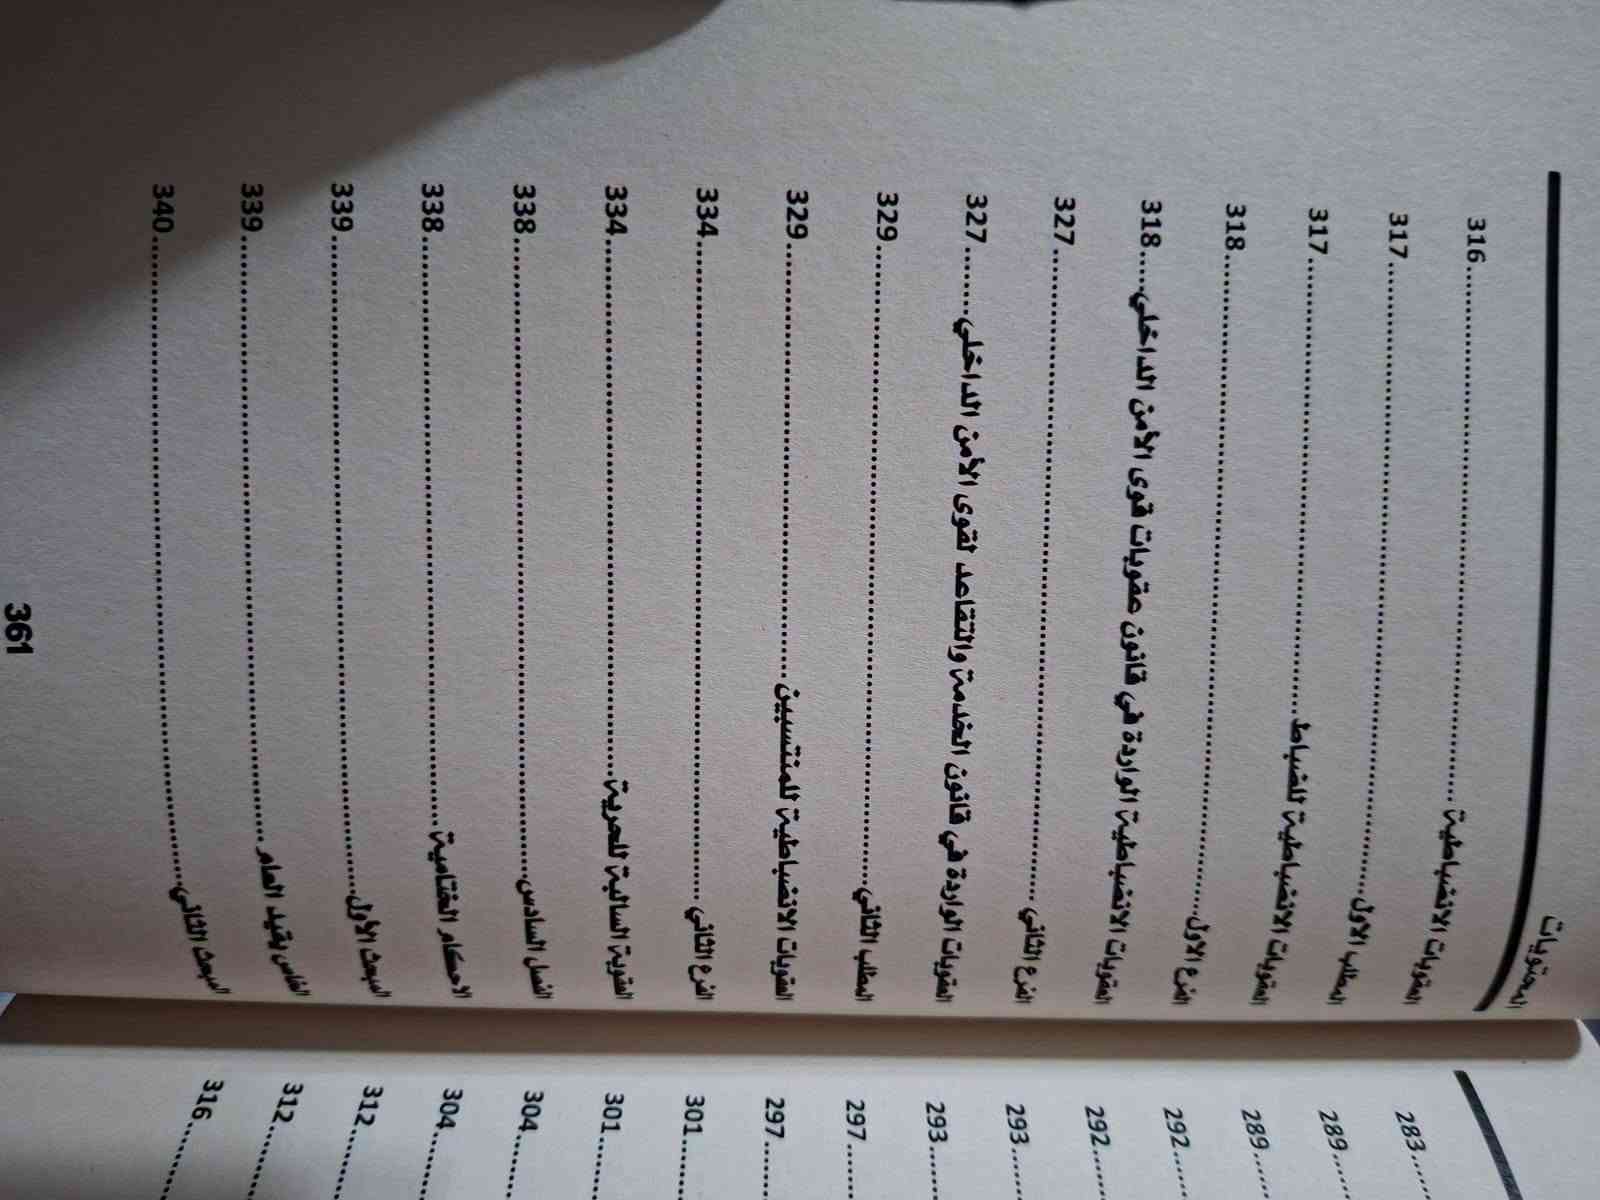 المحتويات
العقوبات الانضباطية ........ 316
المطلب الاول ........ 317
العقوبات الانضباطية للضباط ........ 317
الفرع الاول ........ 318
العقوبات الانضباطية الواردة في قانون عقوبات قوى الأمن الداخلي ..... 318
الفرع الثاني ........ 327
العقوبات الواردة في قانون الخدمة والتقاعد لقوى الأمن الداخلي ........ 327
المطلب الثاني ........ 329
العقوبات الانضباطية للمنتسبين ........ 329
الفرع الثاني ........ 334
العقوبة السالبة للحرية ........ 334
الفصل السادس ........ 338
الاحكام الختامية ........ 338
المبحث الأول ........ 339
الخاص يقيد العام ........ 339
المبحث الثاني ........ 340
361
283
289
289
292
292
293
293
297
297
301
301
304
304
312
312
316